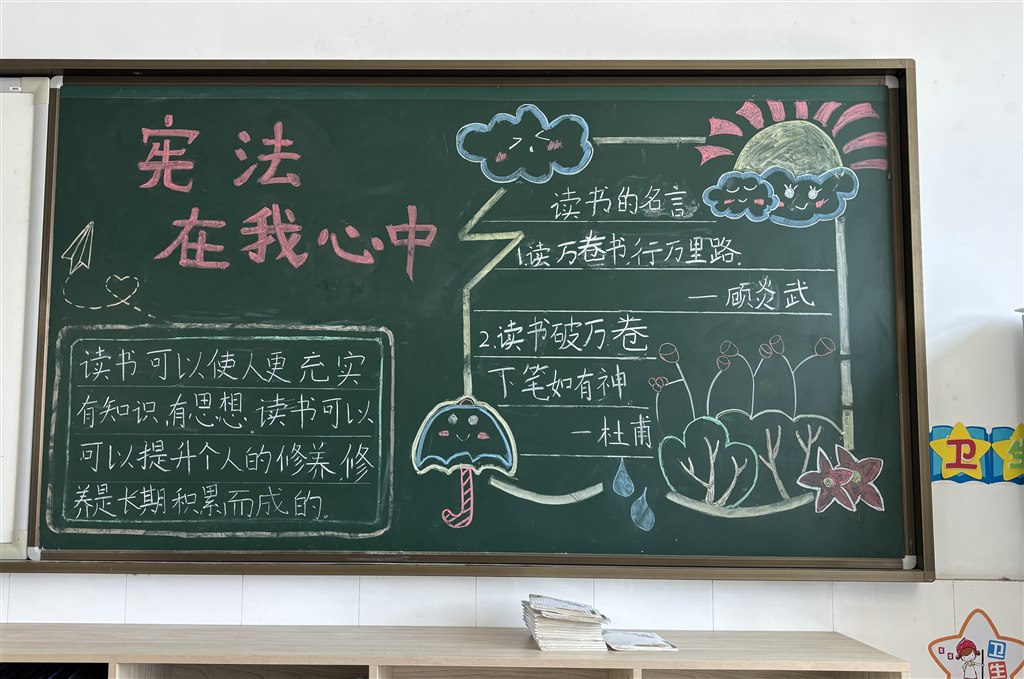 宪法
在我心中
读书可以使人更充实
有知识,有思想.读书可以
可以提升个人的修养.修
养是长期积累而成的.
读书的名言
1.读万卷书,行万里路.
—顾炎武
2.读书破万卷
下笔如有神
—杜甫
卫
生
卫
生